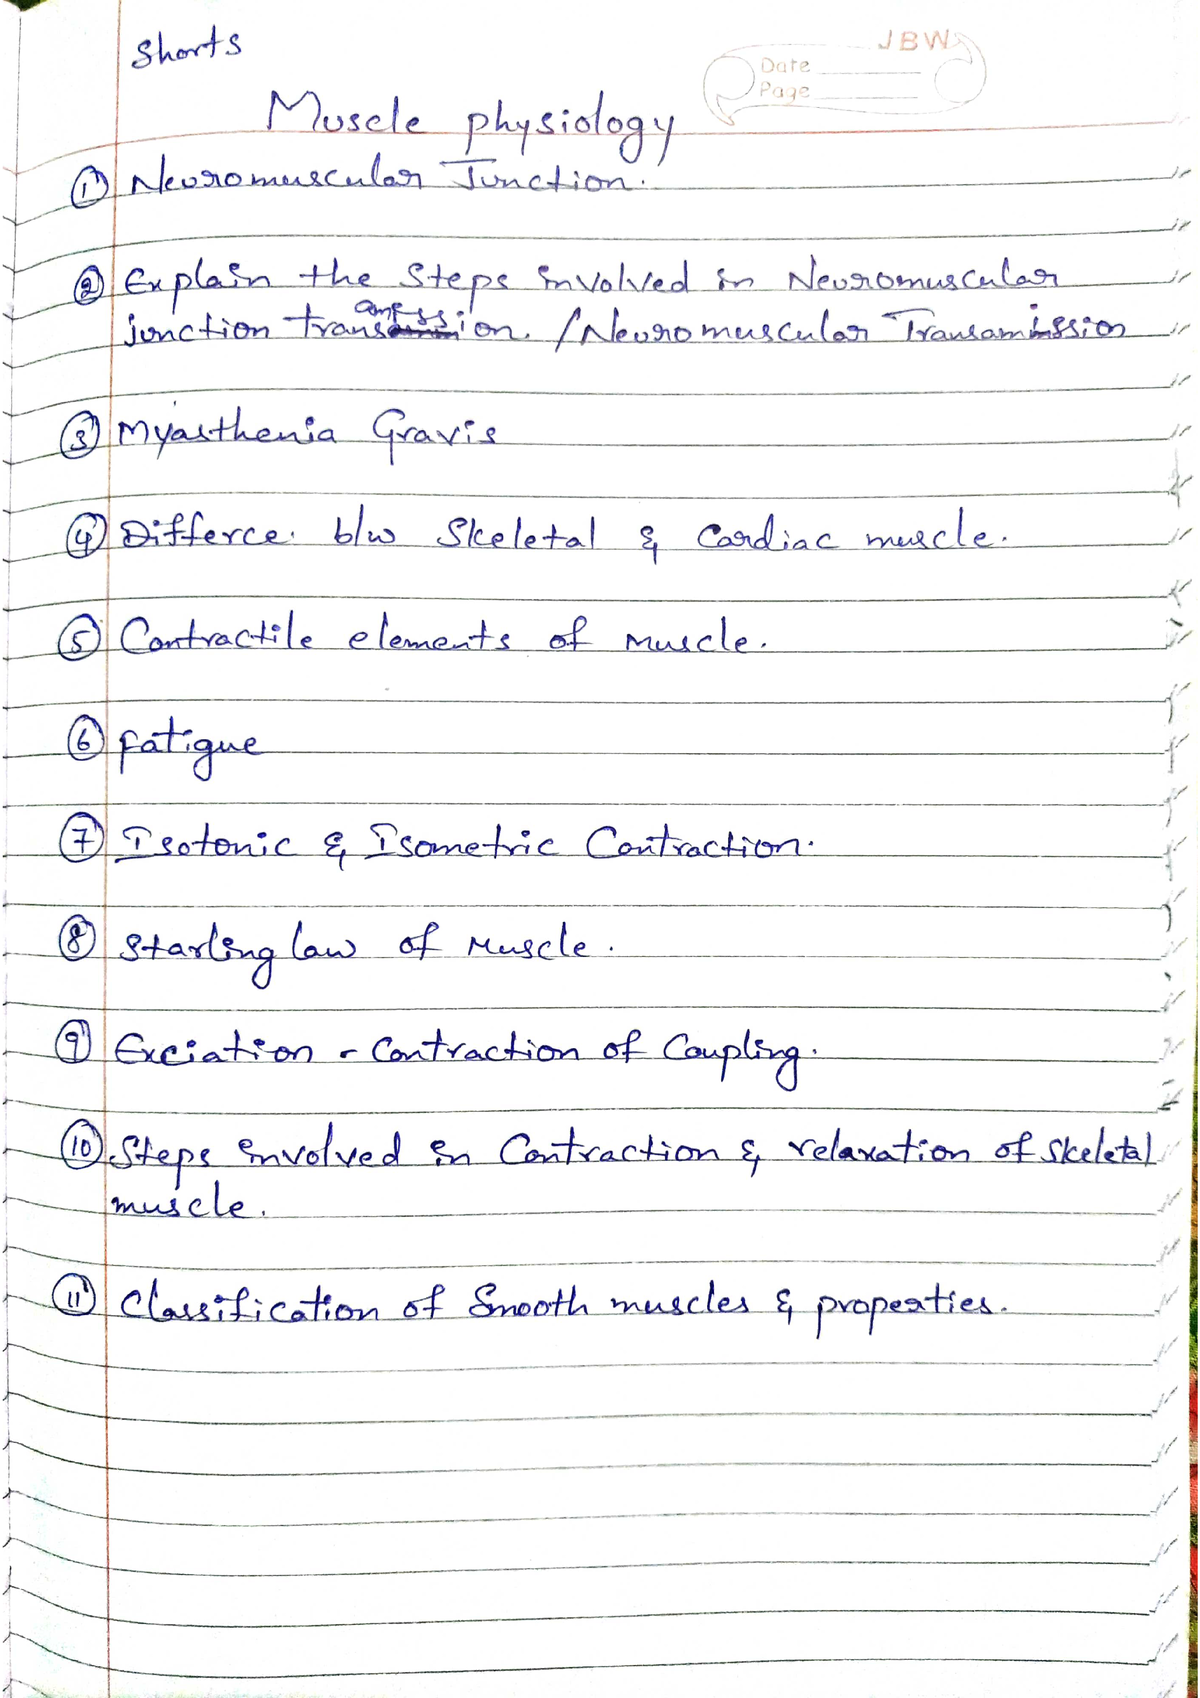 Shorts
JBW
Date
Page
Muscle physiology
① Neuromuscular Junction.
② Explain the steps involved in Neuromuscular
junction transion. / Neuromuscular Transamission
③ Myasthenia Gravis
④ Differce. b/w Skeletal & Cardiac muscle.
⑤ Contractile elements of muscle.
⑥ fatigue
⑦ Isotonic & Isometric Contraction.
⑧ Starling law of Muscle.
⑨ Exciation - Contraction of Coupling.
⑩ Steps involved in Contraction & relaxation of Skeletal
muscle.
⑪ Classification of Smooth muscles & properties.